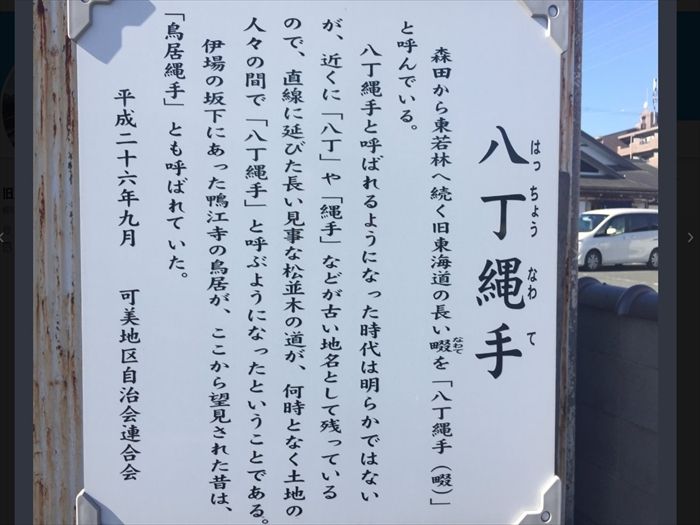 八丁縄手
はっちょうなわて
森田から東若林へ続く旧東海道の長い畷を「八丁縄手（畷）」
なわて
と呼んでいる。
八丁縄手と呼ばれるようになった時代は明らかではない
が、近くに「八丁」や「縄手」などが古い地名として残っている
ので、直線に延びた長い見事な松並木の道が、何時となく土地の
人々の間で「八丁縄手」と呼ぶようになったということである。
伊場の坂下にあった鴨江寺の鳥居が、ここから望見された昔は、
「鳥居縄手」とも呼ばれていた。
平成二十六年九月　可美地区自治会連合会